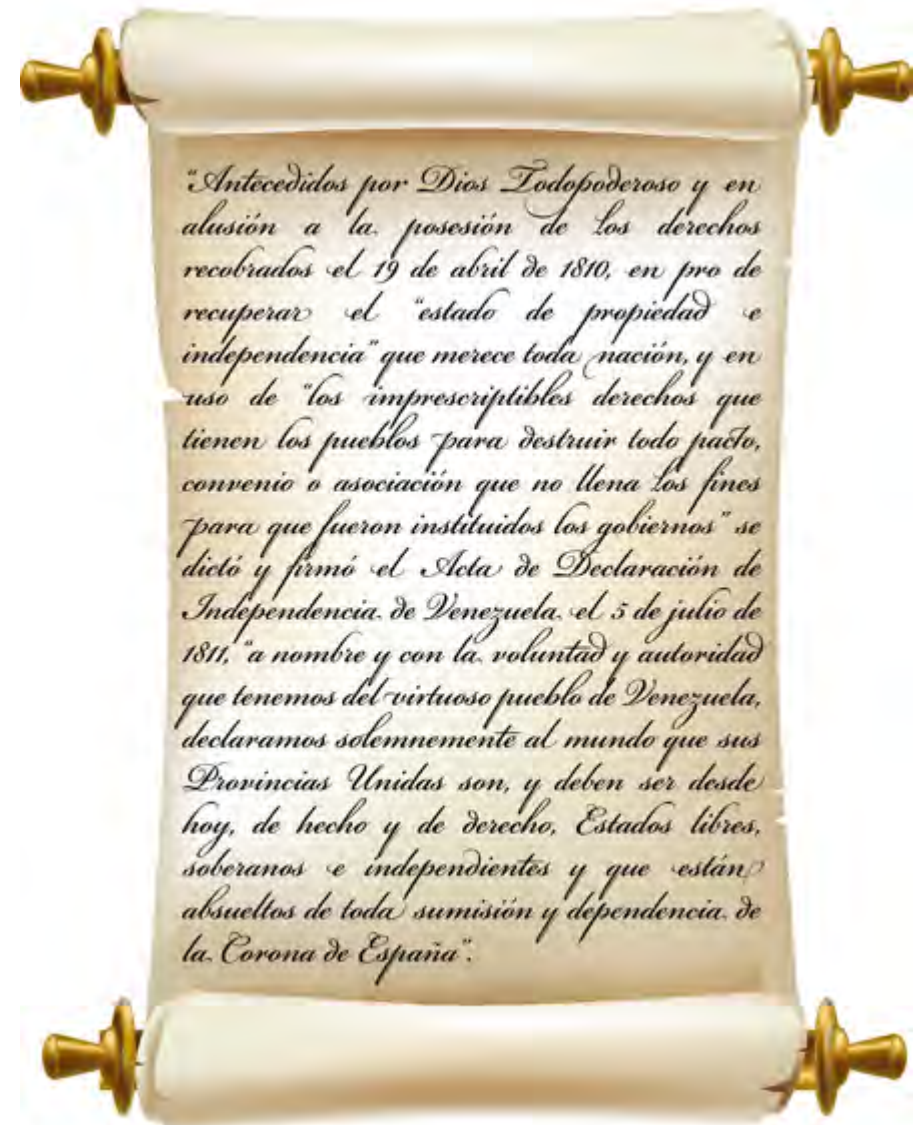 "Antecedidos por Dios Todopoderoso y en
alusión a la posesión de los derechos
recobrados el 19 de abril de 1810, en pro de
recuperar el "estado de propiedad e
independencia" que merece toda nación, y en
uso de "los imprescriptibles derechos que
tienen los pueblos para destruir todo pacto,
convenio o asociación que no llena los fines
para que fueron instituidos los gobiernos" se
dictó y firmó el Acta de Declaración de
Independencia de Venezuela el 5 de julio de
1811, "a nombre y con la voluntad y autoridad
que tenemos del virtuoso pueblo de Venezuela,
declaramos solemnemente al mundo que sus
Provincias Unidas son, y deben ser desde
hoy, de hecho y de derecho, Estados libres,
soberanos e independientes y que están
absueltos de toda sumisión y dependencia de
la Corona de España".